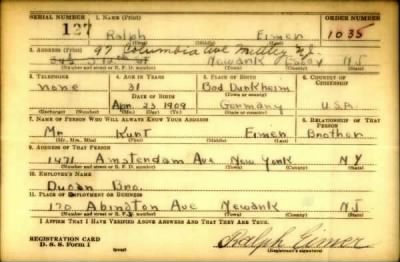 SERIAL NUMBER 1. NAME (Print) ORDER NUMBER
127 Ralph Eimer 1035
(First) (Middle) (Last)
2. ADDRESS (Print) 97 Columbia Ave N.J.
Newark Essex NJ
(Number and street or R. F. D. number) (Town) (County) (State)
3. TELEPHONE 4. AGE IN YEARS 5. PLACE OF BIRTH 6. COUNTRY OF CITIZENSHIP
none 31 Bad Dunkheim
DATE OF BIRTH (Town or county)
Apr. 23 1909 Germany U.S.A.
(Exchange) (Number) (Mo.) (Day) (Yr.) (State or country)
7. NAME OF PERSON WHO WILL ALWAYS KNOW YOUR ADDRESS 8. RELATIONSHIP OF THAT PERSON
Mr. Kurt Eimer Brother
(Mr., Mrs., Miss) (First) (Middle) (Last)
9. ADDRESS OF THAT PERSON
1471 Amsterdam Ave New York NY
(Number and street or R. F. D. number) (Town) (County) (State)
10. EMPLOYER'S NAME
Bro.
11. PLACE OF EMPLOYMENT OR BUSINESS
170 Abington Ave Newark NJ
(Number and street or R. F. D. number) (Town) (County) (State)
I AFFIRM THAT I HAVE VERIFIED ABOVE ANSWERS AND THAT THEY ARE TRUE.
REGISTRATION CARD
D. S. S. Form 1 Ralph Eimer
(Registrant's signature)